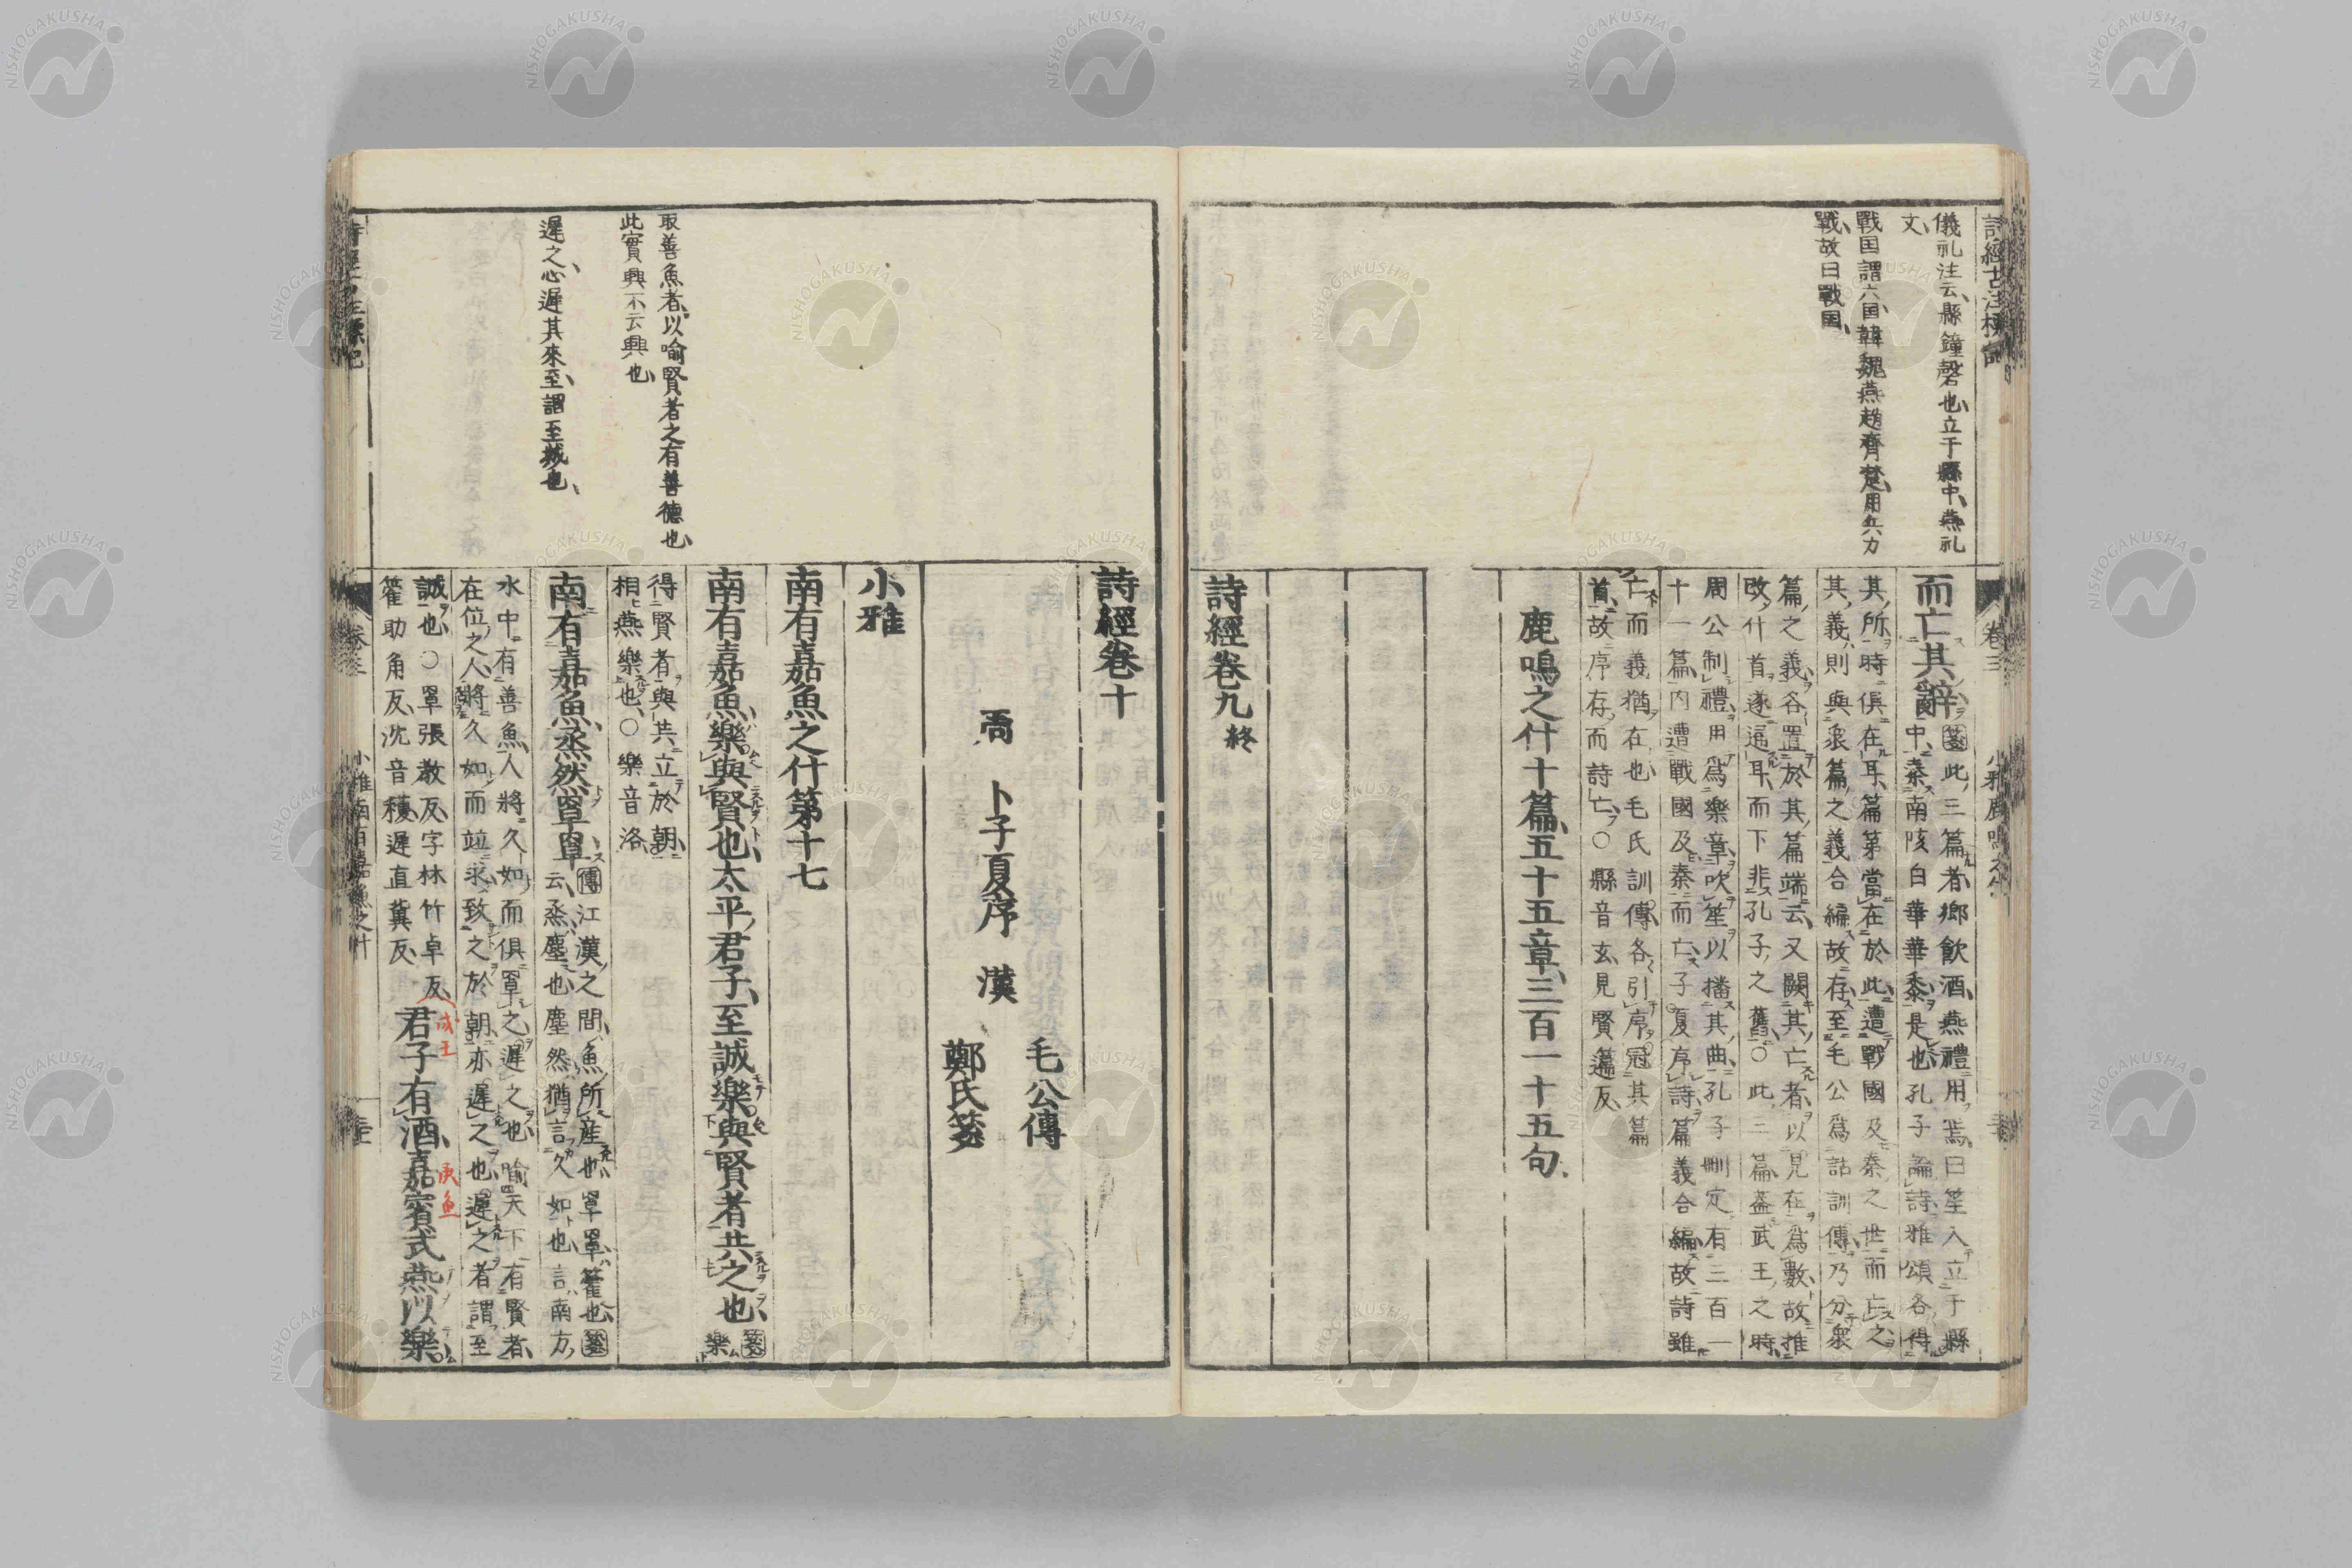 儀礼注云縣鐘磬也立于縣中燕礼
文
戰国謂六国韓魏燕趙齊楚用兵力
戰故曰戰国
而亡其辭
箋此三篇者鄉飲酒燕禮用焉曰笙入立于縣
中奏南陔白華華黍是也孔子論詩雅頌各得
其所時俱在耳篇第當在於此遭戰國及秦之世而亡之
其義則與衆篇之義合編故存至毛公爲詁訓傳乃分衆
篇之義各置於其篇端云又闕其亡者以見在爲數故推
改什首遂通耳而下非孔子之舊○此三篇蓋武王之時
周公制禮用爲樂章吹笙以播其曲孔子刪定有三百一
十一篇内遭戰國及秦而亡子夏序詩篇義合編故詩雖
亡而義猶在也毛氏訓傳各引序冠其篇
首故序存而詩亡○縣音玄見賢遍反
鹿鳴之什十篇五十五章三百一十五句
詩經卷九 終
取善魚者以喻賢者之有善德也
此實興不云興也
遲之心遲其來至謂至誠也
詩經卷十
卜子夏序 漢
毛公傳
鄭氏箋
小雅
南有嘉魚之什第十七
南有嘉魚樂與賢也太平君子至誠樂與賢者共之也
箋
樂
得賢者與共立於朝
相燕樂也○樂音洛
南有嘉魚烝然罩罩
傳江漢之間魚所産也罩罩籗也箋
云烝塵也塵然猶言久如也言南方
水中有善魚人將久如而俱罩之遲之也喻天下有賢者
在位之人將久如而竝求致之於朝亦遲之也遲之者謂至
誠也○罩張教反字林竹卓反
籗助角反沈音穫遲直冀反
成王
庚魚
君子有酒嘉賓式燕以樂
卷三
小雅南有嘉魚之什